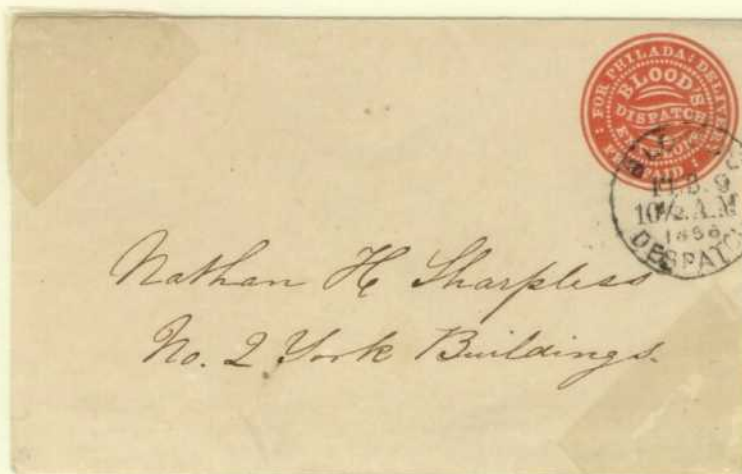 FOR PHILADA: DELIVERY
BLOOD'S
DISPATCH
PREPAID
10½ A.M
1856
DESPATCH
Nathan H Sharpless
No. 2 York Buildings.